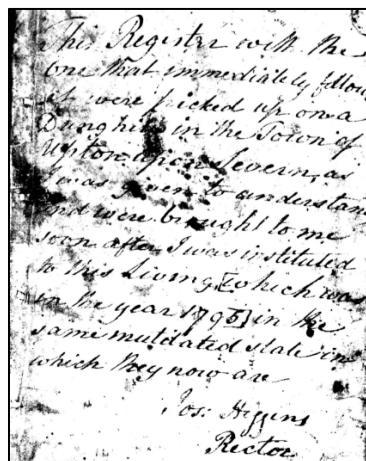 This Register with the
One that immediately follow
it were picked up on a
Dunghill in the Town of
Upton upon Severn, as
I was given to understand
and were brought to me
soon after I was instituted
to this Living, [which was
in the year 1795] in the
same mutilated state in
which they now are
Jos: Higgins
Rector